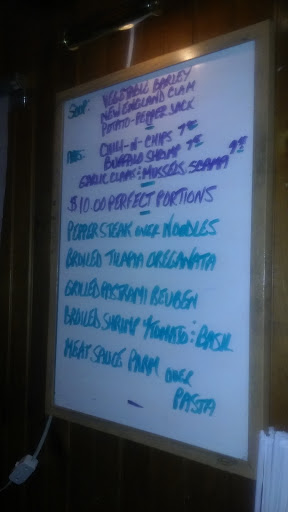 SOUP: VEGETABLE BARLEY
NEW ENGLAND CLAM
POTATO-PEPPER JACK
CHILI-N-CHIPS 7.95
BUFFALO SHRIMP 7.95
GARLIC CLAMS & MUSSELS 9.95
$10.00 PERFECT PORTIONS
PEPPER STEAK OVER NOODLES
BROILED TILAPIA OREGANATA
GRILLED PASTRAMI REUBEN
BROILED SHRIMP TOMATO & BASIL
MEAT SAUCE PARM OVER
PASTA